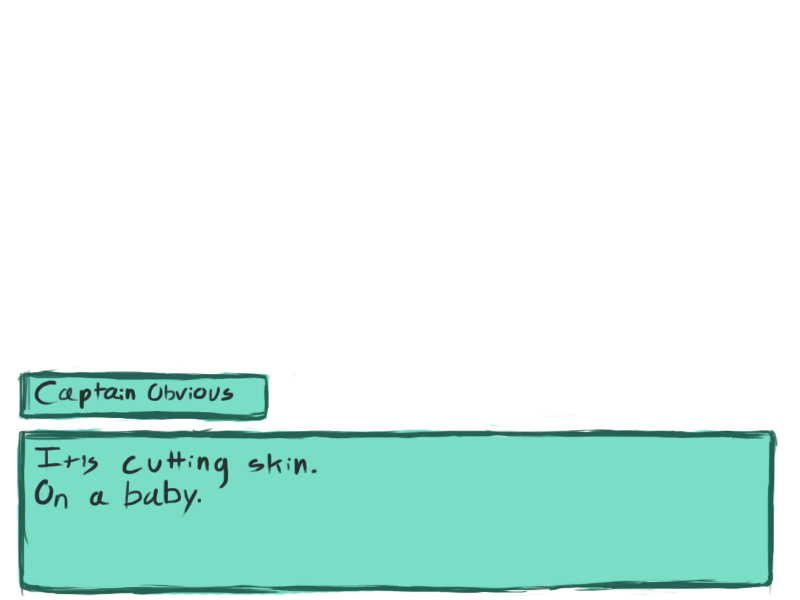 Captain Obvious
It is cutting skin.
On a baby.